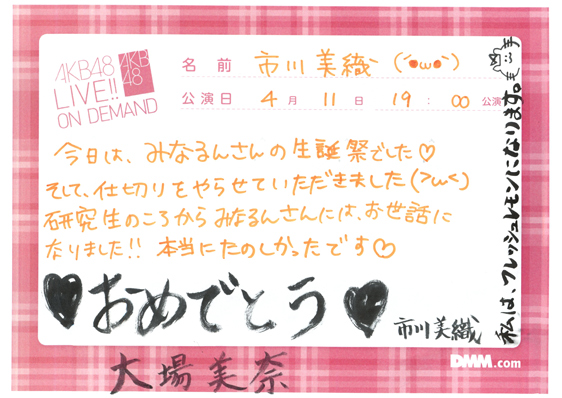 AKB48
LIVE!!
ON DEMAND
AKB
48
名前 市川美織 (´●ω●`)
公演日 4月11日 19:00 公演
今日は、みなるんさんの生誕祭でした♡
そして、仕切りをやらせていただきました(>ω<)
研究生のころからみなるんさんには、お世話に
なりました!! 本当にたのしかったです♡
♥おめでとう♥
市川美織
大場美奈
私は、フレッシュレモンになります。
DMM.com